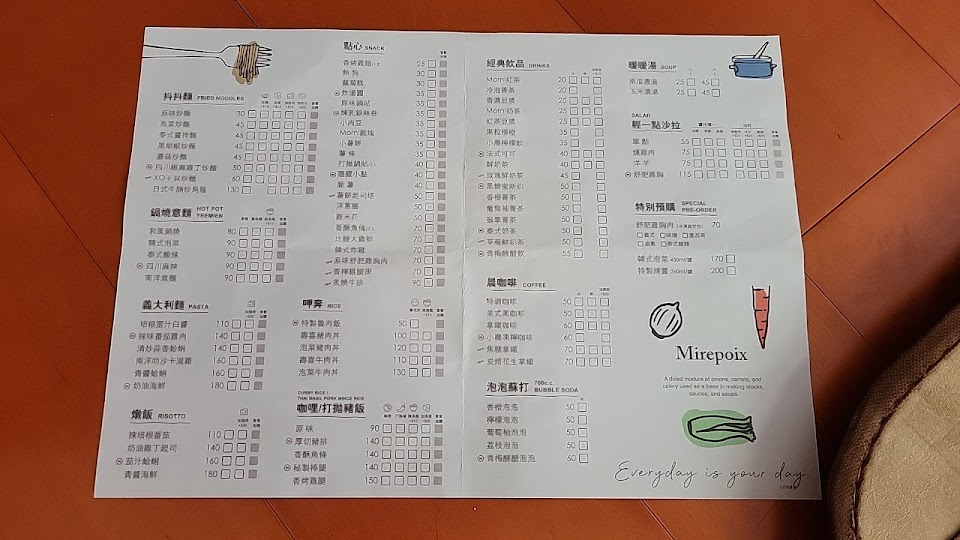 抖抖麵 FRIED NOODLES
原味炒麵 30
泡菜炒麵 45
泰式醬拌麵 45
黑胡椒炒麵 45
蘑菇炒麵 45
四川椒麻雞丁炒麵 50
XO干貝炒麵 60
日式牛腩炒烏龍 130
鍋燒意麵 HOT POT YEEMIEN
和風鍋燒 80
韓式泡菜 90
泰式酸辣 90
四川麻辣 90
南洋意麵 90
義大利麵 PASTA
培根蛋汁白醬 110
辣味番茄雞肉 140
清炒蒜香蛤蜊 140
南洋叻沙卡滋雞 160
青醬蛤蜊 160
奶油海鮮 180
燉飯 RISOTTO
辣培根番茄 110
奶油雞丁起司 140
茄汁蛤蜊 160
青醬海鮮 180
點心 SNACK
香烤雞翅 25
熱狗 30
蘿蔔糕 30
炸湯圓 35
原味鍋貼 35
煉乳銀絲卷 35
小肉豆 35
Morni雞塊 35
小薯餅 35
薯條 35
打拋鍋貼 40
隱藏小點 40
脆薯 40
薯餅起司塔 50
洋蔥圈 50
雞米花 50
香酥魚條 60
比臉大雞排 60
韓式炸雞 60
原味舒肥雞胸肉 90
香檸雞腿排 90
炙燒牛排 90
呷奔 RICE
特製魯肉飯 50
壽喜豬肉丼 100
泡菜豬肉丼 120
壽喜牛肉丼 110
泡菜牛肉丼 130
CURRY RICE /
THAI BASIL PORK MINCE RICE
咖哩/打拋豬飯
原味 90
厚切豬排 140
香酥魚條 140
秘製棒腿 140
香烤雞腿 150
經典飲品 DRINKS
Morni紅茶 20
冷泡菁茶 20
香濃豆漿 25
Morni奶茶 30
紅茶豆漿 30
果粒柳橙 30
小農檸檬飲 35
法式可可 40
鮮奶茶 40
玫瑰鮮奶茶 45
黑糖蜜斯奶 50
香橙菁茶 50
葡萄柚菁茶 50
翡翠菁茶 50
泰式奶茶 50
草莓鮮奶茶 60
青梅醋醋飲 55
晨咖啡 COFFEE
特調咖啡 50
美式黑咖啡 50
拿鐵咖啡 60
小農凍檸咖啡 60
焦糖拿鐵 70
炭焙花生拿鐵 70
泡泡蘇打 700c.c. BUBBLE SODA
香橙泡泡 50
檸檬泡泡 50
葡萄柚泡泡 50
荔枝泡泡 50
青梅醋醋泡泡 60
暖暖湯 SOUP
南瓜濃湯 25 45
玉米濃湯 25 45
SALAD
輕一點沙拉
單點 55
燻雞肉 75
洋芋 75
舒肥雞胸 115
特別預購 SPECIAL PRE-ORDER
舒肥雞胸肉 70
韓式泡菜 450ml/罐 170
特製辣醬 260ml/罐 200
Mirepoix
A diced mixture of onions, carrots, and
celery used as a base in making stocks,
sauces, and soups.
Everyday is your day